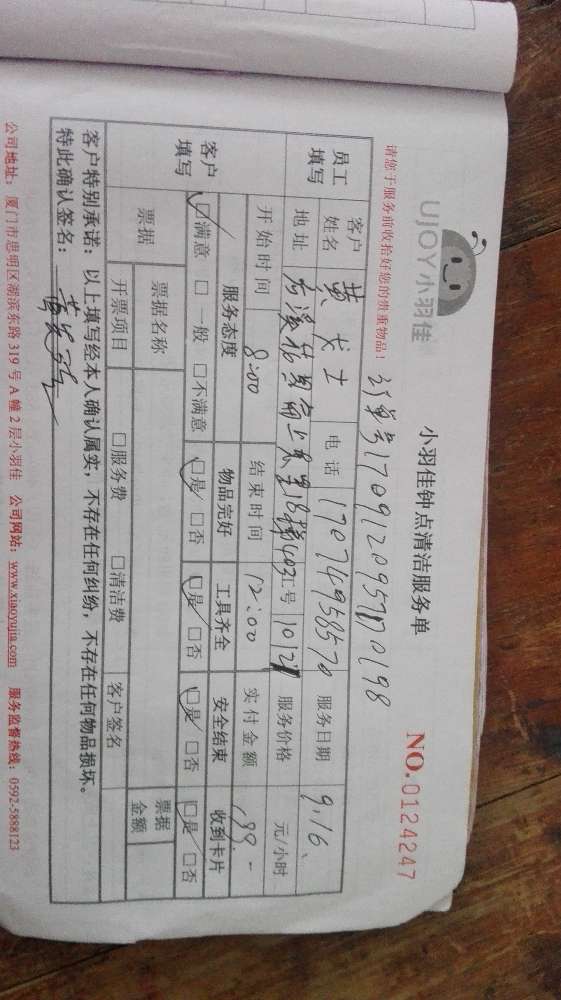 UJOY小羽佳
小羽佳钟点清洁服务单
NO.0124247
请您于服务前收拾好您的贵重物品！
订单号17091209571170198
员工填写
客户姓名 黄女士 电话 17074958570 服务日期 9.16、
地址 18 403 工号 1012 服务价格 元/小时
开始时间 8:00 结束时间 12:00 实付金额 199.-
客户填写
服务态度 物品完好 工具齐全 安全结束 收到卡片
☑满意 □一般 □不满意 ☑是 □否 ☑是 □否 ☑是 □否 ☑是 □否
票据 票据名称 票据金额
开票项目 □服务费 □清洁费 客户签名
客户特别承诺：以上填写经本人确认属实，不存在任何纠纷，不存在任何物品损坏。
特此确认签名：
公司地址：厦门市思明区湖滨东路319号A幢2层小羽佳 公司网站：www.xiaoyujia.com 服务监督热线：0592-5888123